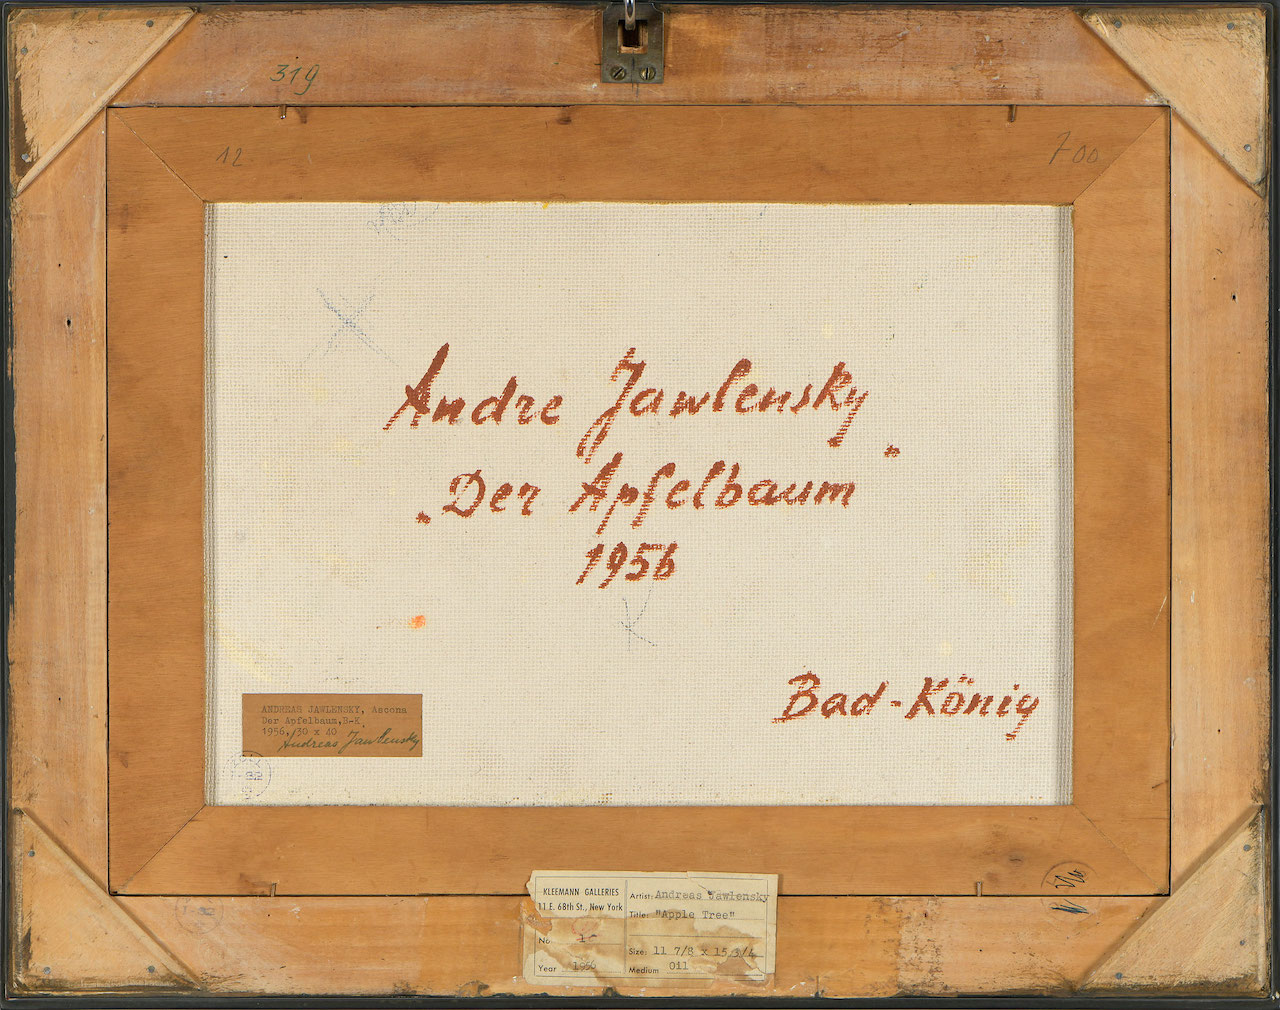 319
12
700
Andre Jawlensky
„Der Apfelbaum"
1956
Bad-König
ANDREAS JAWLENSKY, Ascona
Der Apfelbaum, B-K.
1956, 30 x 40
Andreas Jawlensky
ZOLL
32
KLEEMANN GALLERIES
11 E. 68th St., New York
No.
Year 1956
Artist: Andreas Jawlensky
Title: "Apple Tree"
Size: 11 7/8 x 15 3/4
Medium Oil